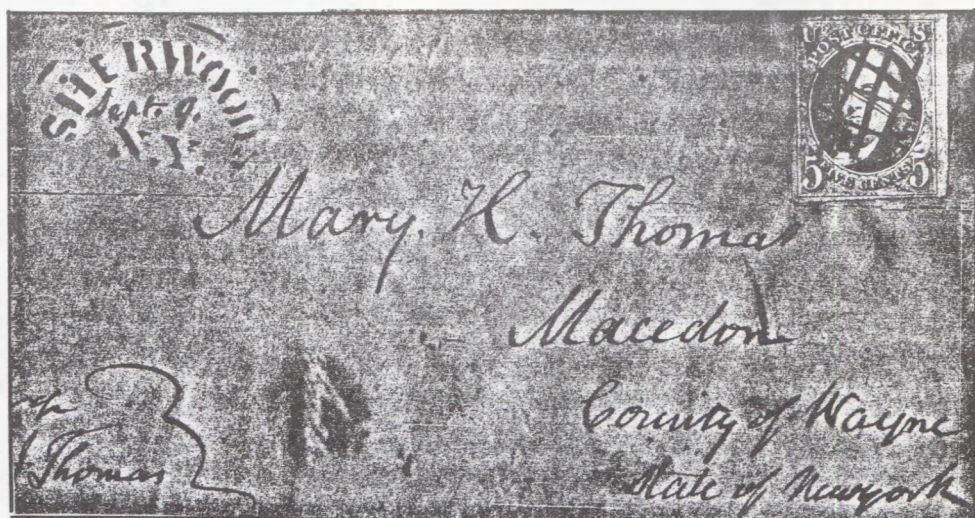 SHERWOOD
Sept. 9.
N.Y.
U S
POST OFFICE
5 FIVE CENTS 5
Mary. H. Thomas
Macedon
County of Wayne
State of Newyork
Thomas